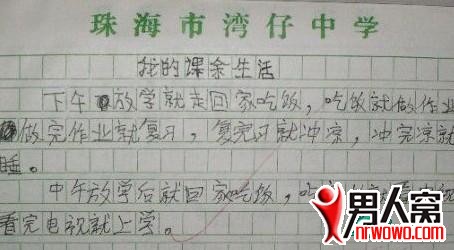 珠海市湾仔中学
我的课余生活
下午放学就走回家吃饭，吃饭就做作业
做完作业就复习，复完习就冲凉，冲完凉就
睡。
中午放学后就回家吃饭，
看完电视就上学。
男人窝
nrwowo.com